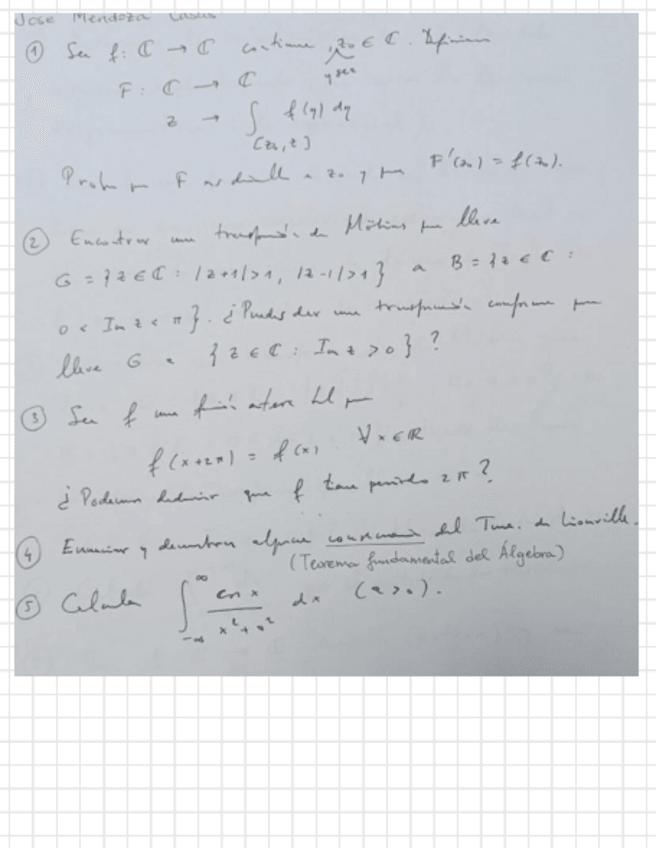 Jose Mendoza Casas
① Sea f: ℂ → ℂ continua, z₀ ∈ ℂ. Definimos
y sea
F: ℂ → ℂ
z → ∫ f(y) dy
[z₀, z]
Probar que F es z₀ y que F'(z₀) = f(z₀).
② Encontrar una transformación de Möbius que lleva
G = {z ∈ ℂ : |z+1|>1, |z-1|>1} a B = {z ∈ ℂ :
0 < Im z < π}. ¿Puedes dar una transformación conforme que
lleve G a {z ∈ ℂ : Im z > 0}?
③ Sea f una función entera tal que
f(x+2π) = f(x) ∀x∈ℝ
¿Podemos deducir que f tiene periodo 2π?
④ Enunciar y demostrar alguna consecuencia del Tma. de Liouville.
(Teorema fundamental del Álgebra)
⑤ Calcula ∫_{-∞}^{∞} cos x / (x²+a²) dx (a>0).